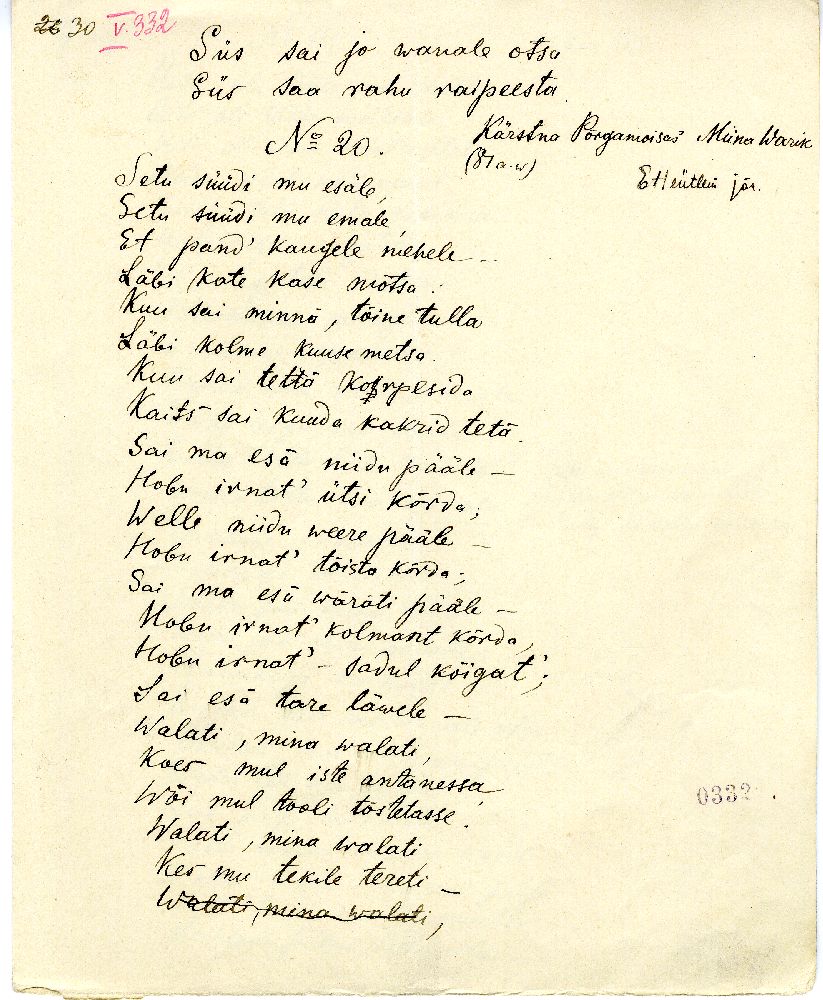 26 30 V. 332
Siis sai jo wanale otsa
Siis saa rahu raipeesta.
No 20.
Kärstna Pōrgamōisas Miina Warik
(81 a. w)
E Heütlein jör.
Setu süüdi mu esäle,
Setu süüdi mu emäle,
Et pand' kaugele mehele...
Läbi kate kase mōtsa:
Kuu sai minnä, tōine tulla
Läbi kolme kuuse metsa.
Kuu sai tettä korpesida
Kaits sai kuuda kakrid tetä.
Sai ma esä niidu pääle —
Hobu irnat' ütsi kōrda;
Welle niidu weere pääle —
Hobu irnat' tōista kōrda;
Sai ma esä wäräti pääle —
Hobu irnat' kolmant kōrda,
Hobu irnat' - sadul kōigat';
Sai esä tare läwele —
Walati, mina walati,
Koes mul iste antanessa,
Wōi mul tooli tōstetasse.
Walati, mina walati,
Kes mu tekile tereti —
Walati, mina walati,
0332